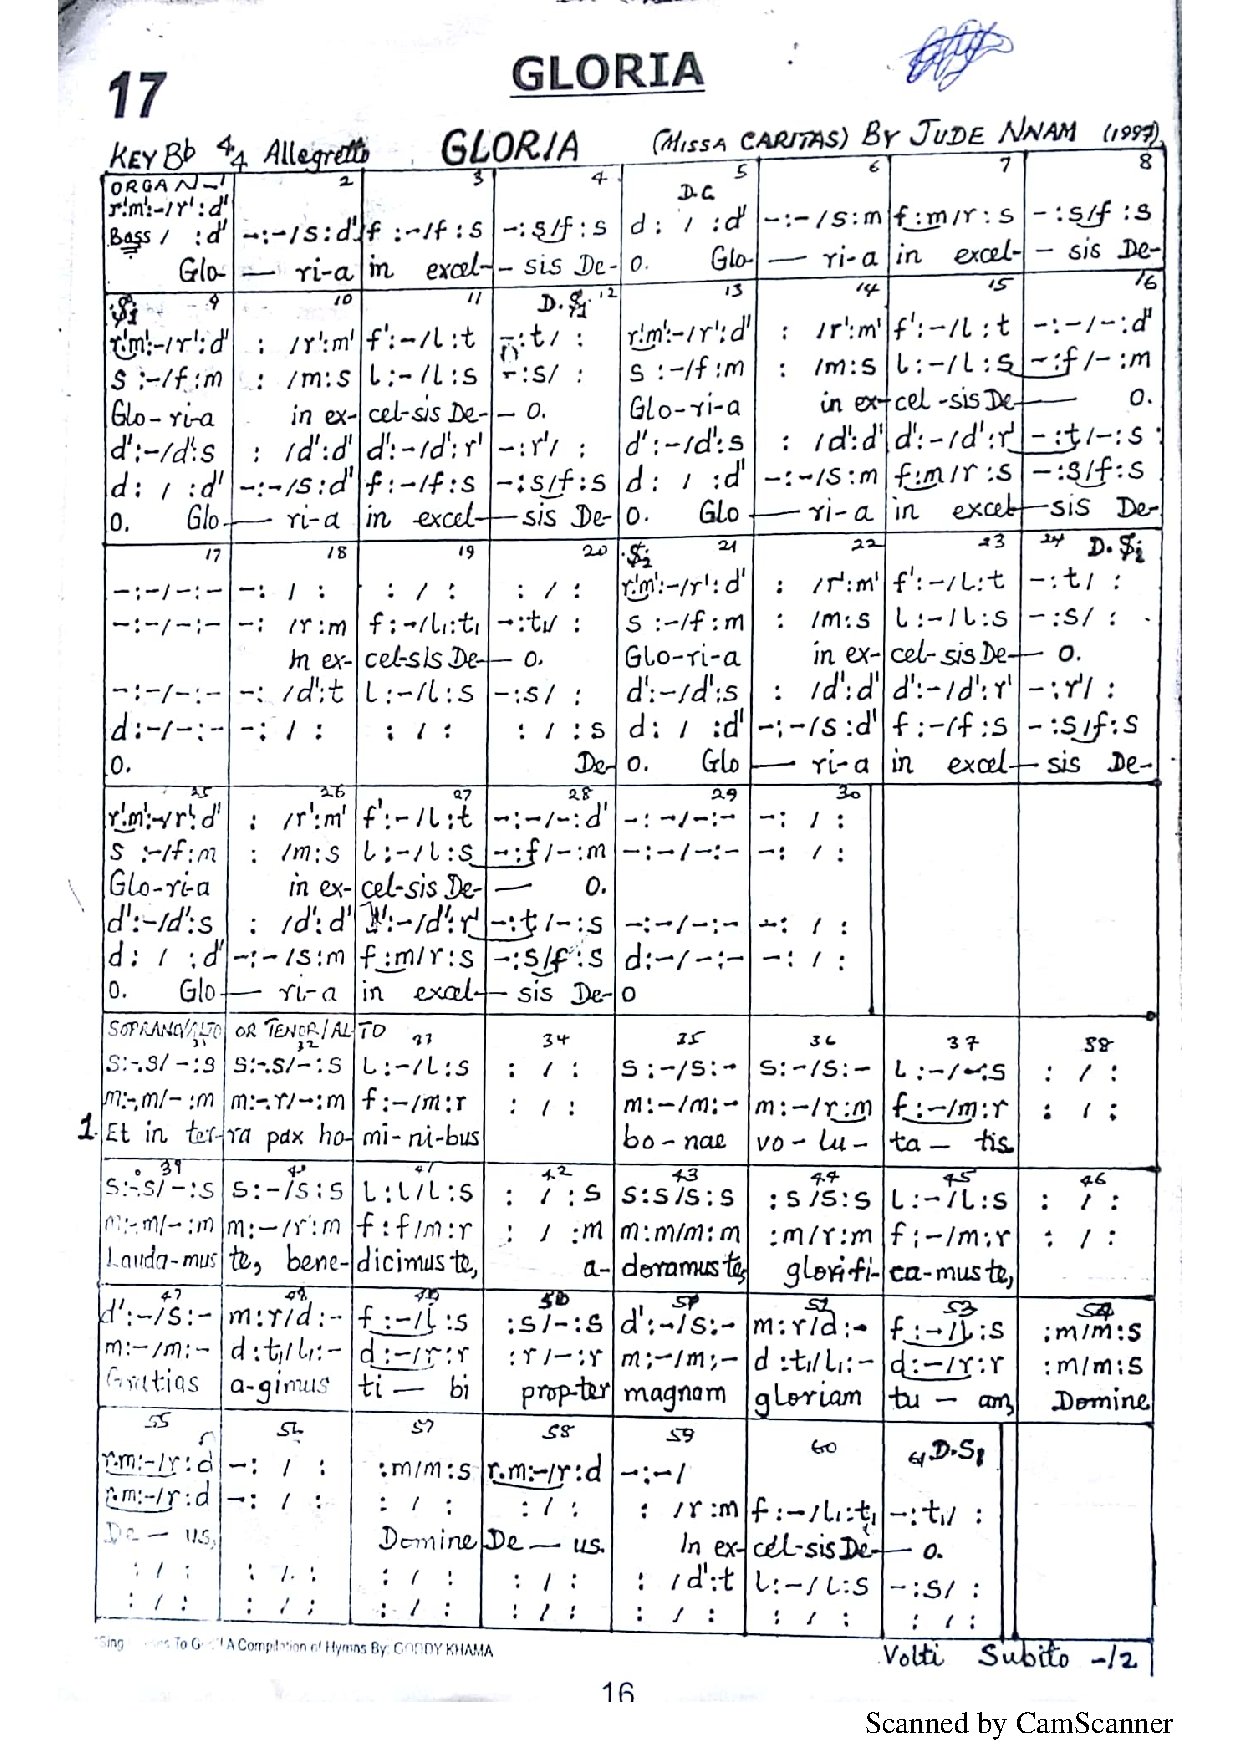 GLORIA
17
KEY Bb 4/4 Allegretto GLORIA (MISSA CARITAS) BY JUDE NNAM (1997)
ORGAN-1 2 3 4 5 6 7 8
r'.m':-/r':d' D.C
Bass / :d' -:-/s:d' f:-/f:s -:s/f:s d: / :d' -:-/s:m f:m/r:s -:s/f:s
Glo- — ri-a in excel- - sis De- o. Glo- — ri-a in excel- - sis De-
𝄋1 9 10 11 D.𝄋1 12 13 14 15 16
r'.m':-/r':d' : /r':m' f':-/l:t -:t/ : r'.m':-/r':d' : /r':m' f':-/l:t -:-/-:d'
s:-/f:m : /m:s l:-/l:s -:s/ : s:-/f:m : /m:s l:-/l:s -:f/-:m
Glo-ri-a in ex- cel-sis De- - o. Glo-ri-a in ex- cel-sis De- — o.
d':-/d':s : /d':d' d':-/d':r' -:r'/ : d':-/d':s : /d':d' d':-/d':r' -:t/-:s
d: / :d' -:-/s:d' f:-/f:s -:s/f:s d: / :d' -:-/s:m f:m/r:s -:s/f:s
o. Glo — ri-a in excel- — sis De- o. Glo — ri-a in excel- — sis De-
17 18 19 20 𝄋2 21 22 23 24 D.𝄋2
-:-/-:- -: / : : / : : / : r'.m':-/r':d' : /r':m' f':-/l:t -:t/ :
-:-/-:- -: /r:m f:-/l₁:t₁ -:t₁/ : s:-/f:m : /m:s l:-/l:s -:s/ :
In ex- cel-sis De- - o. Glo-ri-a in ex- cel-sis De- - o.
-:-/-:- -: /d':t l:-/l:s -:s/ : d':-/d':s : /d':d' d':-/d':r' -:r'/ :
d:-/-:- -: / : : / : : / :s d: / :d' -:-/s:d' f:-/f:s -:s/f:s
o. De- o. Glo — ri-a in excel- — sis De-
25 26 27 28 29 30
r'.m':-/r':d' : /r':m' f':-/l:t -:-/-:d' -:-/-:- -: / :
s:-/f:m : /m:s l:-/l:s -:f/-:m -:-/-:- -: / :
Glo-ri-a in ex- cel-sis De- — o.
d':-/d':s : /d':d' d':-/d':r' -:t/-:s -:-/-:- -: / :
d: / :d' -:-/s:m f:m/r:s -:s/f:s d:-/-:- -: / :
o. Glo — ri-a in excel- — sis De- o
SOPRANO/ALTO OR TENOR/ALTO
31 32 33 34 35 36 37 38
s:-.s/-:s s:-.s/-:s l:-/l:s : / : s:-/s:- s:-/s:- l:-/-:s : / :
m:-.m/-:m m:-.r/-:m f:-/m:r : / : m:-/m:- m:-/r:m f:-/m:r : / :
1. Et in ter- ra pax ho- mi-ni-bus bo-nae vo-lu- ta — tis
39 40 41 42 43 44 45 46
s:-.s/-:s s:-/s:s l:l/l:s : / :s s:s/s:s :s/s:s l:-/l:s : / :
m:-.m/-:m m:-/r:m f:f/m:r : / :m m:m/m:m :m/r:m f:-/m:r : / :
Lauda-mus te, bene- dicimus te, a- doramus te, glorifi- ca-mus te,
47 48 49 50 51 52 53 54
d':-/s:- m:r/d:- f:-/l:s :s/-:s d':-/s:- m:r/d:- f:-/l:s :m/m:s
m:-/m:- d:t₁/l₁:- d:-/r:r :r/-:r m:-/m:- d:t₁/l₁:- d:-/r:r :m/m:s
Gratias a-gimus ti — bi propter magnam gloriam tu — am, Domine
55 56 57 58 59 60 61 D.S1
r.m:-/r:d -: / : :m/m:s r.m:-/r:d -:-/
r.m:-/r:d -: / : : / : : / : : /r:m f:-/l₁:t₁ -:t₁/ :
De — us, Domine De — us. In ex- cel-sis De- — o.
: / : : / : : / : : / : : /d':t l:-/l:s -:s/ :
: / : : / : : / : : / : : / : : / : : / :
"Sing To G A Compilation of Hymns By: GODDY KHAMA
Volti Subito -/2
16
Scanned by CamScanner